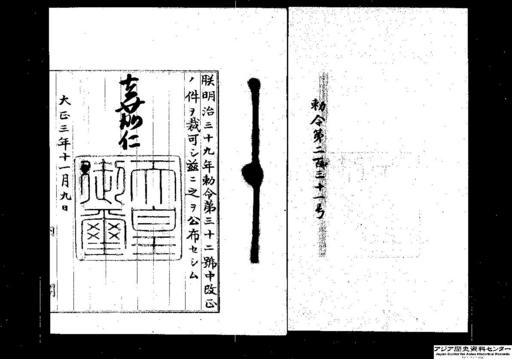 勅令第二百三十一号
朕明治三十九年勅令第三十二號中改正
ノ件ヲ裁可シ茲ニ之ヲ公布セシム
嘉仁
天皇
御璽
大正三年十一月九日
アジア歴史資料センター
Japan Center for Asian Historical Records